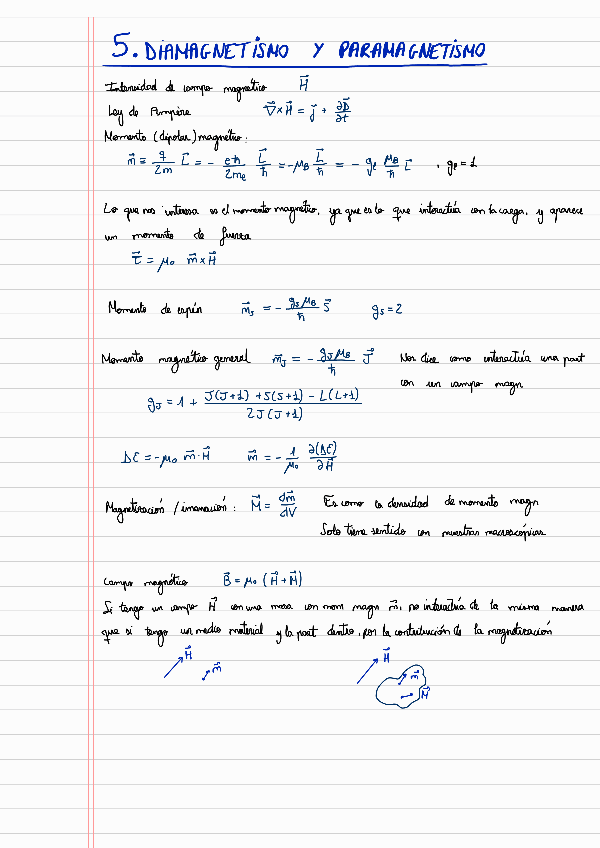 5. DIAMAGNETISMO Y PARAMAGNETISMO
Intensidad de campo magnético H⃗
Ley de Ampère ∇⃗×H⃗ = j⃗ + ∂D⃗/∂t
Momento (dipolar) magnético:
m⃗ ≡ q/2m L⃗ = - eħ/2mₑ L⃗/ħ = -μB L⃗/ħ = - gℓ μB/ħ L⃗ , gℓ = 1
Lo que nos interesa es el momento magnético, ya que es lo que interactúa con la carga, y aparece
un momento de fuerza
τ⃗ = μ₀ m⃗×H⃗
Momento de espín m⃗ₛ = - gₛμB/ħ S⃗ gₛ = 2
Momento magnético general m⃗J = - gJμB/ħ J⃗ Nos dice como interactúa una part
con un campo magn
gJ = 1 + J(J+1) + S(S+1) - L(L+1) / 2J(J+1)
ΔE = -μ₀ m⃗·H⃗ m⃗ = - 1/μ₀ ∂(ΔE)/∂H⃗
Magnetización / imanación: M⃗ = dm⃗/dV Es como la densidad de momento magn
Solo tiene sentido con muestras macroscópicas
Campo magnético B⃗ = μ₀ (H⃗ + M⃗)
Si tengo un campo H⃗ con una masa con mom magn m⃗, no interactúa de la misma manera
que si tengo un medio material y la part dentro, por la contribución de la magnetización
H⃗ m⃗ H⃗ m⃗
M⃗